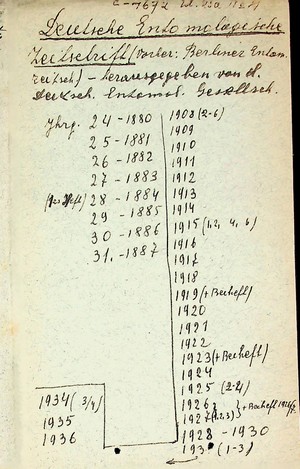 C-7672
Deutsche Entomologische
Zeitschrift (vorher: Berliner Entom.
Zeitsch) – herausgegeben von d.
Deutsch. Entomol. Gesellsch.
Jhrg. 24 - 1880
25 - 1881
26 - 1882
27 - 1883
28 - 1884
29 - 1885
30 - 1886
31. - 1887
1908 (2-6)
1909
1910
1911
1912
1913
1914
1915 (1,2, 4, 6)
1916
1917
1918
1919 (+ Beiheft)
1920
1921
1922
1923 (+ Beiheft)
1924
1925 (2-4)
1926 } + Beiheft
1927 (1,2,3)
1928 - 1930
(1-3)
1934 (3/4)
1935
1936